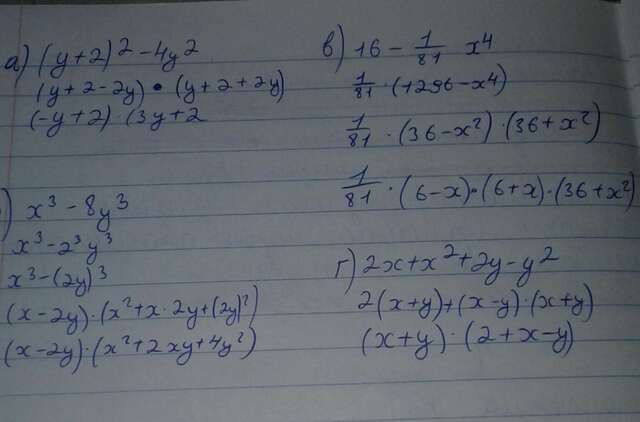 а) (y+2)² - 4y²
(y+2-2y) • (y+2+2y)
(-y+2) · (3y+2
) x³ - 8y³
x³ - 2³y³
x³ - (2y)³
(x-2y) · (x²+x·2y+(2y)²)
(x-2y) · (x²+2xy+4y²)
в) 16 - 1/81 x⁴
1/81 · (1296-x⁴)
1/81 · (36-x²) · (36+x²)
1/81 · (6-x) · (6+x) · (36+x²)
г) 2x+x²+2y-y²
2(x+y)+(x-y)·(x+y)
(x+y) · (2+x-y)